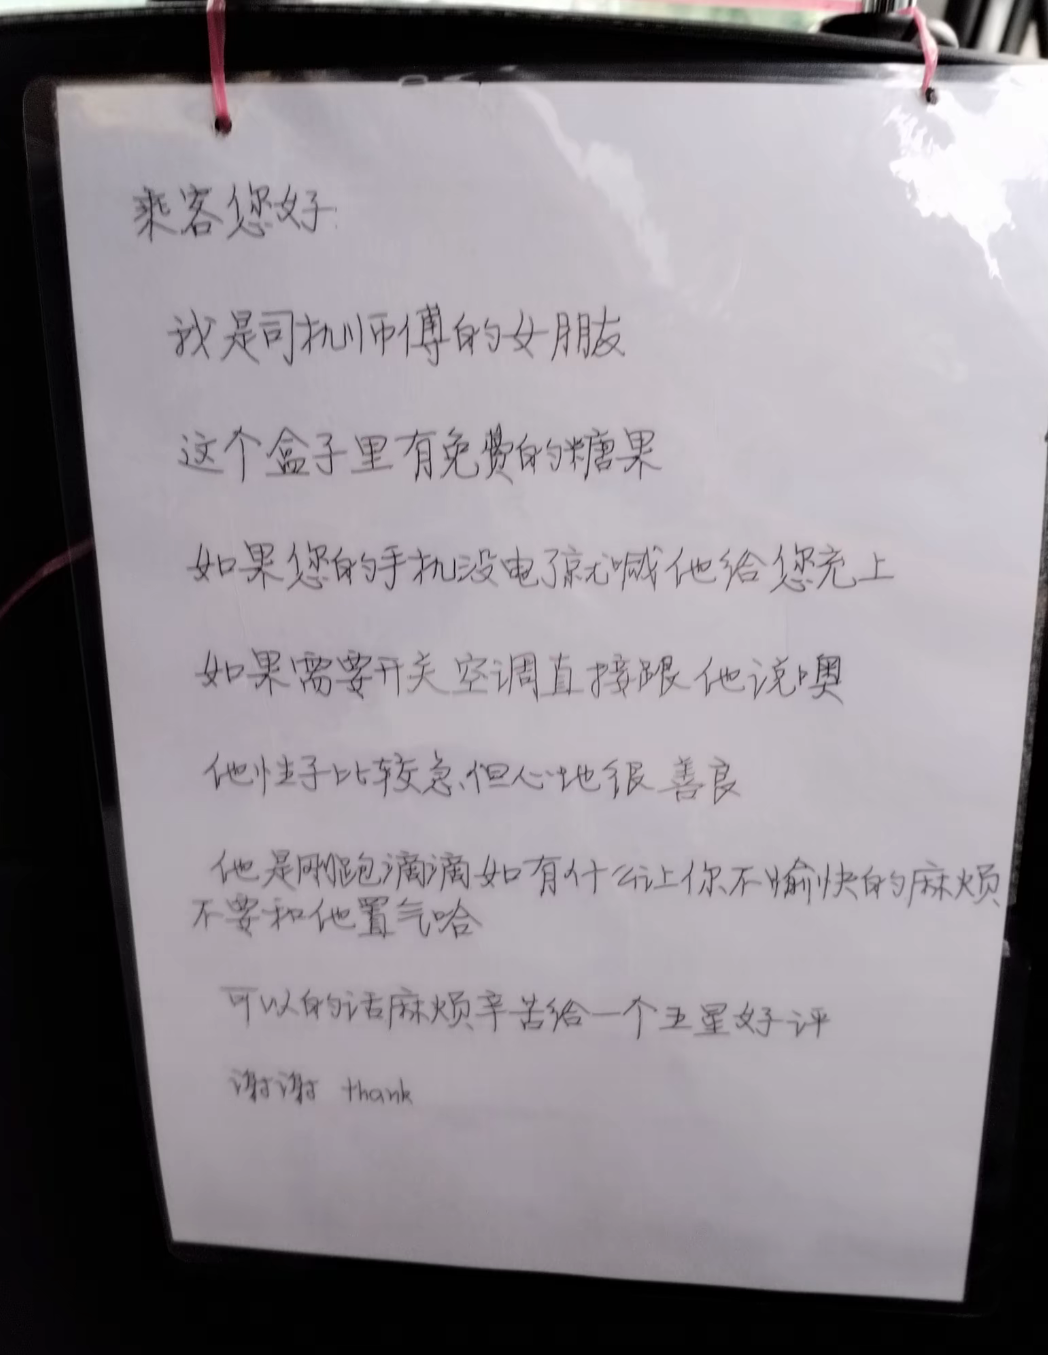 乘客您好:
我是司机师傅的女朋友
这个盒子里有免费的糖果
如果您的手机没电了就喊他给您充上
如果需要开关空调直接跟他说噢
他性子比较急、但心地很善良
他是刚跑滴滴如有什么让你不愉快的麻烦
不要和他置气哈
可以的话麻烦辛苦给一个五星好评
谢谢 thank